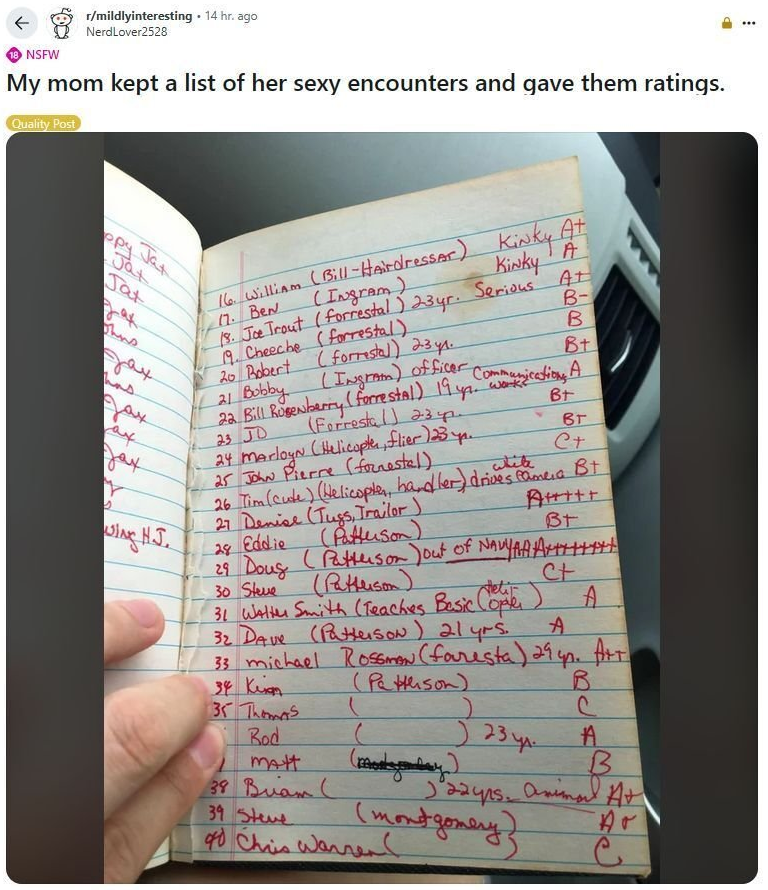 r/mildlyinteresting • 14 hr. ago
NerdLover2528
18 NSFW
My mom kept a list of her sexy encounters and gave them ratings.
Quality Post
ppy Jax
Jax
Jax
Jax
Jax
Jax
ax
Jax
wing H.J.
16. William (Bill-Hairdresser) Kinky A+
17. Ben (Ingram) Kinky A
18. Joe Trout (forrestal) 23yr. Serious A+
19. Cheeche (forrestal) B-
20 Robert (forrestal) 23 yr. B
21 Bobby (Ingram) officer B+
22 Bill Rosenberry (forrestal) 19 yr. works Communications A
23 JD (Forrestal) 23 yr. B+
24 Marloyn (Helicopter, flier) 23 yr. B+
25 John Pierre (forrestal) C+
26 Tim (cute) (Helicopter, handler) drives white Camero B+
27 Denise (Tugs, Trailor) A+++++
28 Eddie (Patterson) B+
29 Doug (Patterson) out of NAVY
30 Steve (Patterson) C+
31 Walter Smith (Teaches Basic Helicopter) A
32 Dave (Patterson) 21 yrs. A
33 michael Rossman (foresta) 29 yr. A++
34 (Patterson) B
35 Thomas ( ) C
Rod ( ) 23 yr. A
Matt ( ) B
38 Brian ( ) 22yrs. animal A+
39 Steve (montgomery) A+
40 Chris Warren ( ) C